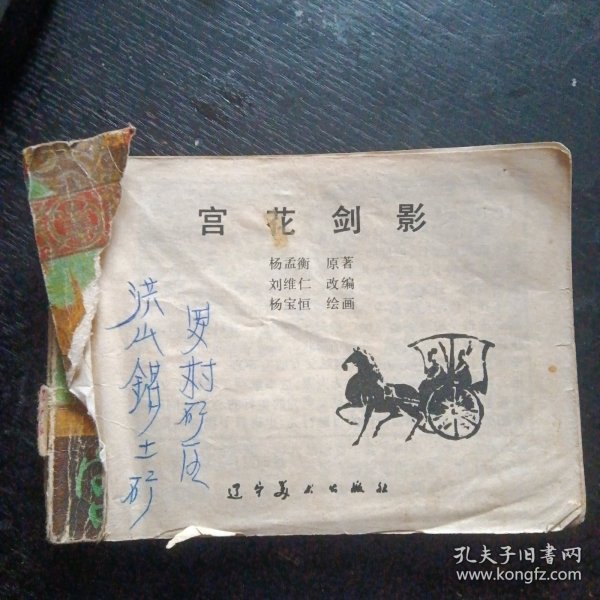 宫花剑影
杨孟衡 原著
刘维仁 改编
杨宝恒 绘画
洪山铝土矿
罗村矿区
辽宁美术出版社
孔夫子旧书网
www.kongfz.com